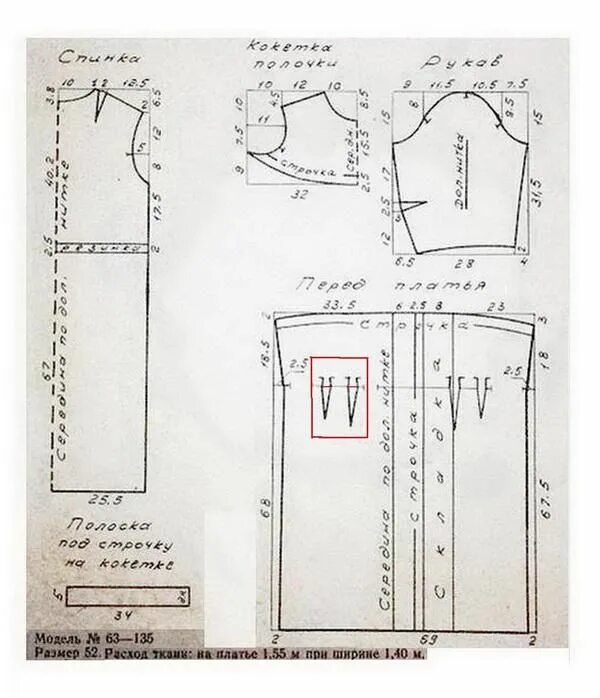 Спинка
10 1 2 12.5
3.8 2 6
12
5 8
40.2
нитке
17.5
2.5 резинка 2
67
Середина по дол.
25.5
Кокетка
полочки
10 12 10
10 4.5 8.5
11
7.5
9
строчка
сер. дн.
15.5
2.5
32
Рукав
9 11.5 10.5 7.5
15 8 8.5 15
Дол. нитка
17
2.5
12
31,5
6.5 28 2 4
Перед платья
33.5 6 2.5 8 23
2 строчка 3
18.5 18
2.5 2.5
Середина по дол. нитке
строчка
Складка
68 67.5
2 59 2
Полоска
под строчку
на кокетке
5 дн
34
Модель № 63—135
Размер 52. Расход ткани: на платье 1,55 м при ширине 1,40 м,